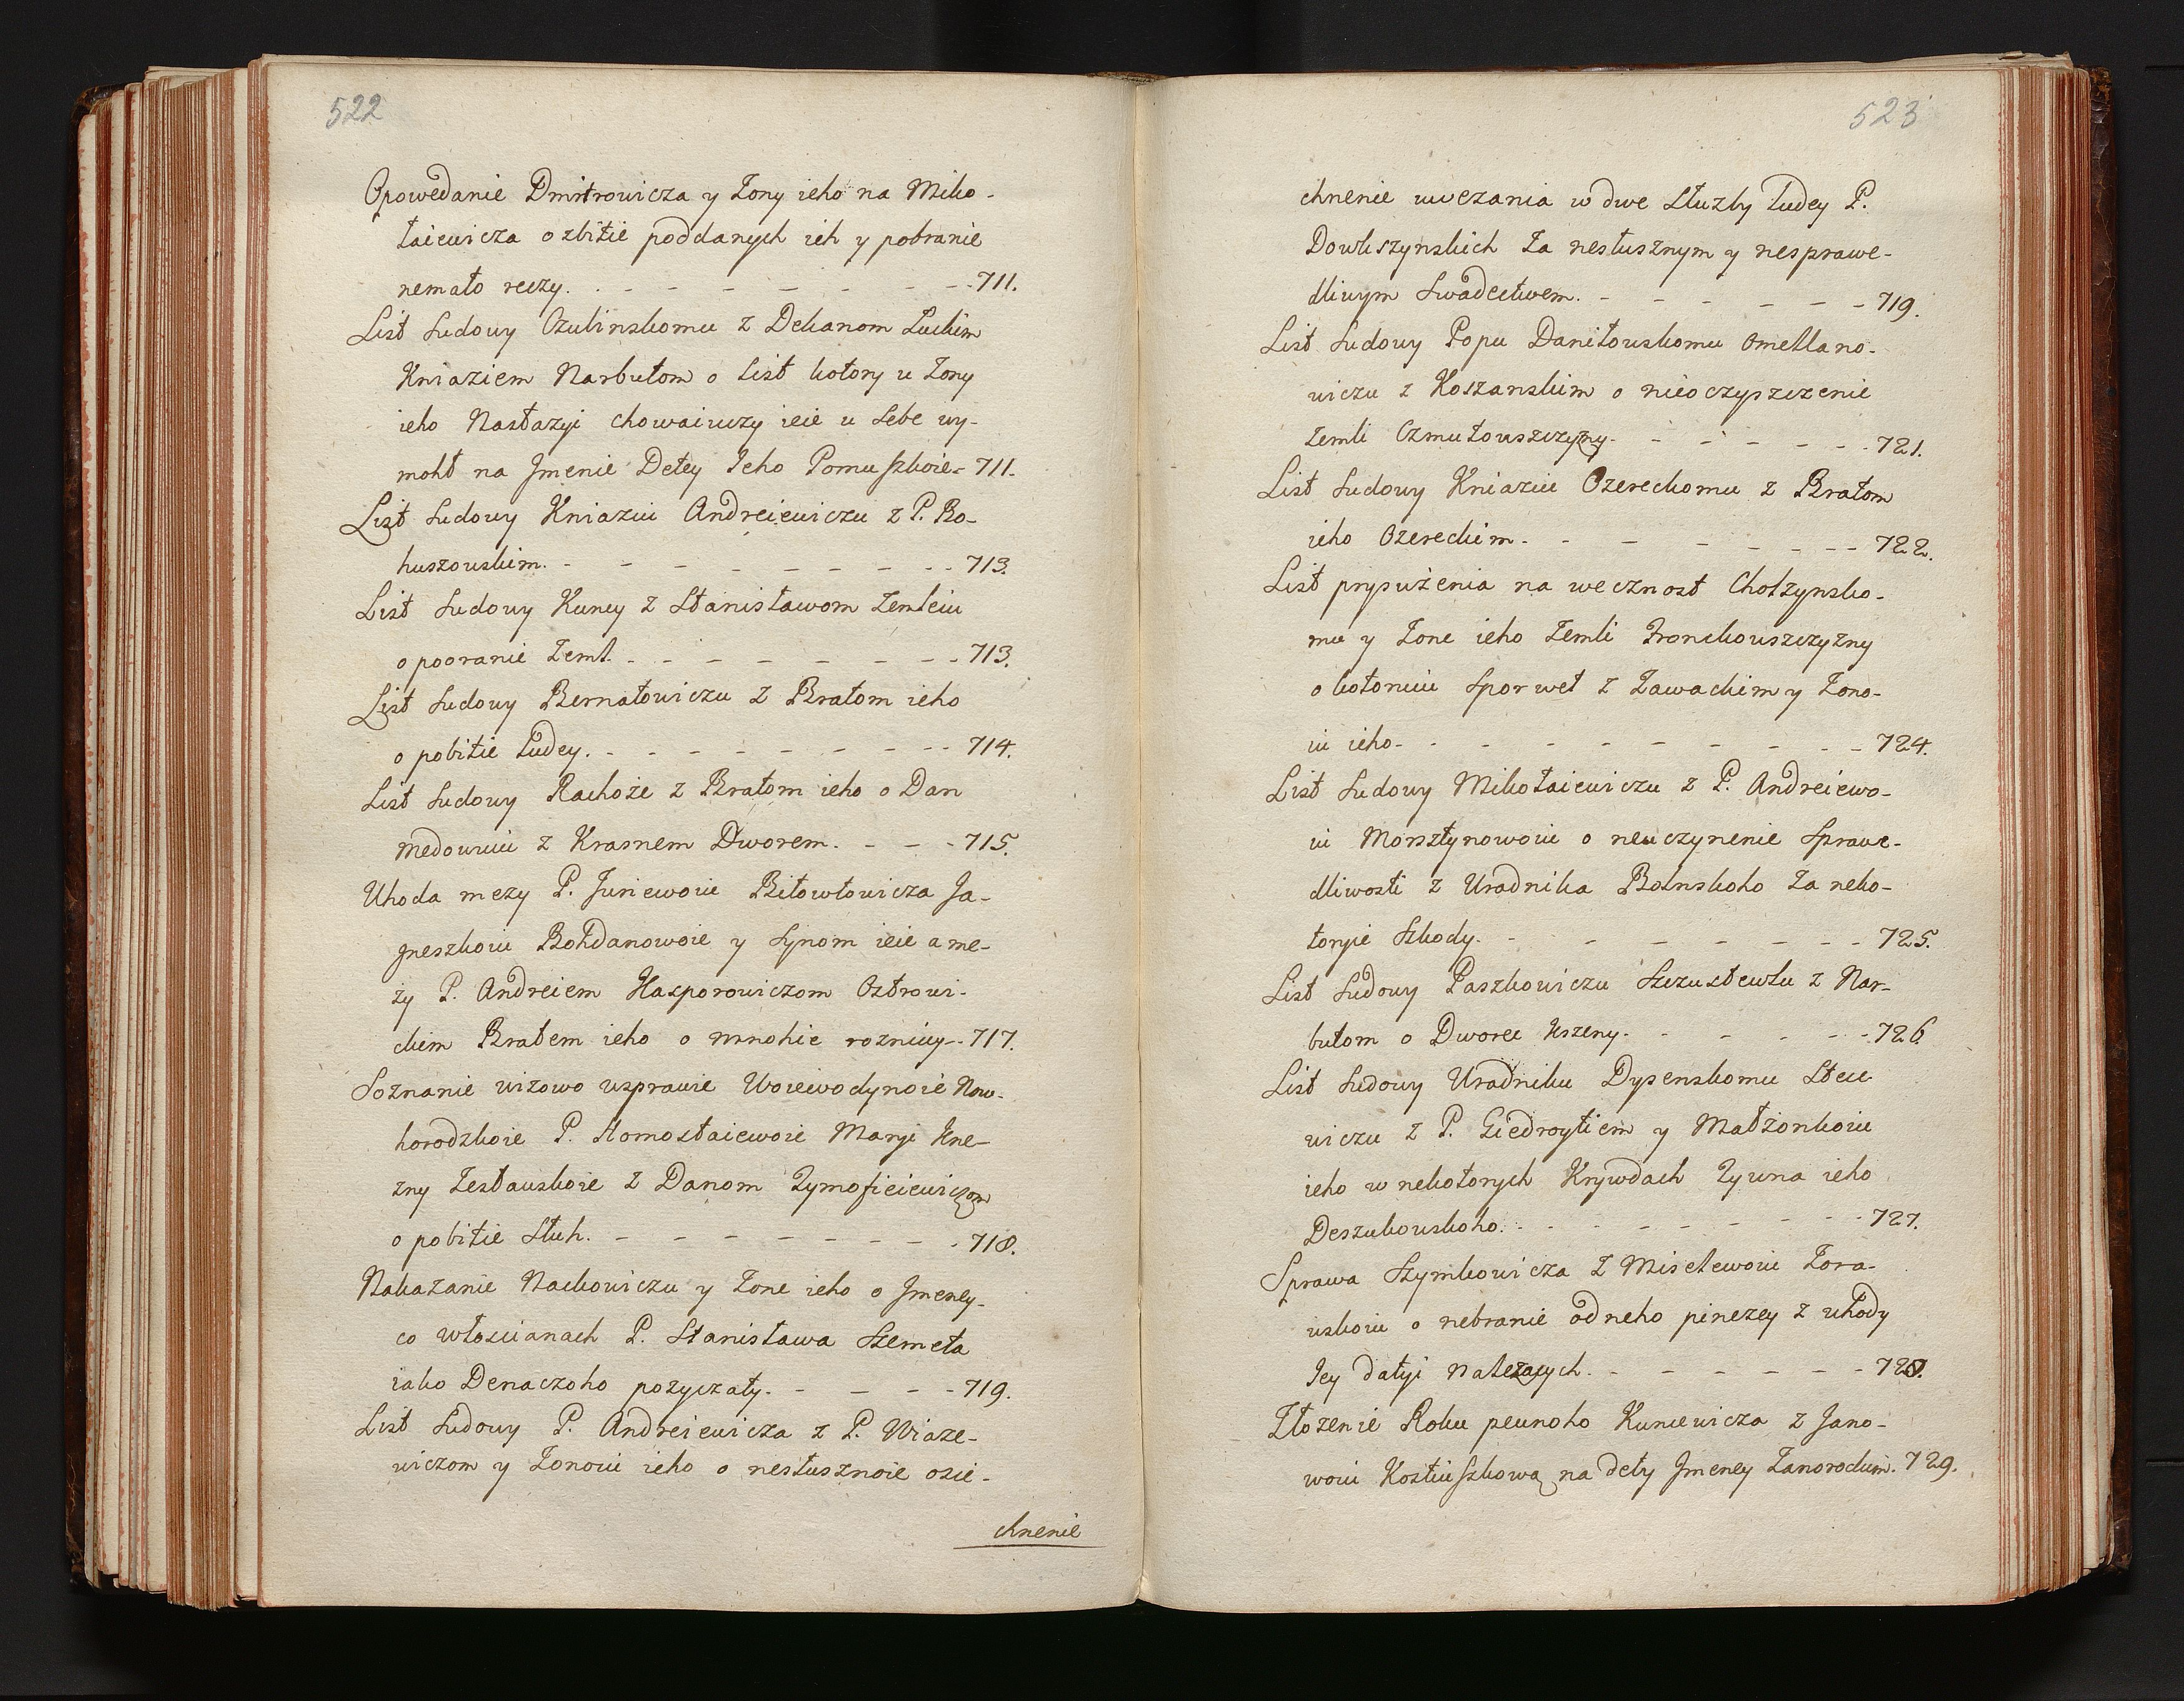 522
Opowedanie Dmitrowicza y Żony ieho na Miko-
łaiewicza o zbitie poddanych ich y pobranie
nemało reczy. - - - - - - - 711.
List Sudowy Czulinskomu z Dekanom Luckim
Kniaziem Narbutom o List kotory u Żony
ieho Nastazyi chowaiuczy ieie u Sebe wy-
mohł na Jmenie Detey Jeho Pomuszkoie - 711.
List Sudowy Kniaziu Andreiewiczu z P. Bo-
huszouskim. - - - - - - - - 713.
List Sudowy Kuncy z Stanisławom Zenkeiu
o pooranie Zeml. - - - - - - - 713.
List Sudowy Bernatowiczu z Bratom ieho
o pobitie Ludey. - - - - - - - - 714.
List Sudowy Rachoże z Bratom ieho o Dan
medownu z Krasnem Dworem. - - - 715.
Uhoda mezy P. Juriewoie Bitowtowicza Ja-
gneszkoiu Bohdanowoie y Synom ieie a me-
ży P. Andreiem Hasporowiczom Ostrowi-
ckim Bratem ieho o mnohie roznicy - 717.
Soznanie wizowo wsprawie Woiewodynoie Now-
horodzkoie P. Homostaiewoie Maryi Kne-
zny Zesławskoie z Danom Tymofieiewiczom
o pobitie Sluh. - - - - - - - - 718.
Nakazanie Nackowiczu y Żone ieho o Jmeney-
co włościanach P. Stanisława Szemeta
iako Denaczoho pożyczały. - - - - 719.
List Sudowy P. Andreiewicza z P. Wiaze-
wiczom y Żonoiu ieho o nesłusznoie osie-
chnenie
523
chnenie uwezania w dwe Służby Ludey P.
Dowkszynskich Za nesłusznym y nesprawe-
dliwym Swadectwem. - - - - - - 719.
List Sudowy Popu Daniłouskomu Omellano-
wiczu z Koszanskim o nieoczyszczenie
Zemli Czmutouszczyzny. - - - - - 721.
List Sudowy Kniaziu Ozereckomu z Bratom
ieho Ozereckim. - - - - - - - 722.
List prysużenia na wecznost Chołzynsko-
mu y Żone ieho Zemli Fronckouszczyzny
o kotoruiu Spor weł z Zawackim y Żono-
iu ieho. - - - - - - - - - 724.
List Sudowy Mikołaiewiczu z P. Andreiewo-
iu Morsztynowoiu o neuczynenie Sprawe-
dliwosti z Uradnika Bolnskoho Za neko-
toryie Szkody. - - - - - - - 725.
List Sudowy Paszkowiczu z Nar-
butom o Dworec Uszeny. - - - - - 726.
List Sudowy Uradniku Dysenskomu Stec-
wiczu z P. Giedroytiem y Małżonkoiu
ieho w nekotorych Krywdach Tywna ieho
Deszukouskoho. - - - - - - - - 727.
Sprawa Szymkowicza z Misclewoiu Zora-
wskoiu o nebranie od neho pinezey z uhody
Jey datyi należących. - - - - - - 728.
Złożenie Roku pewnoho Kuncewicza z Jano-
woiu Kostiuszkową na dety Jmeney Zanorockim. 729.